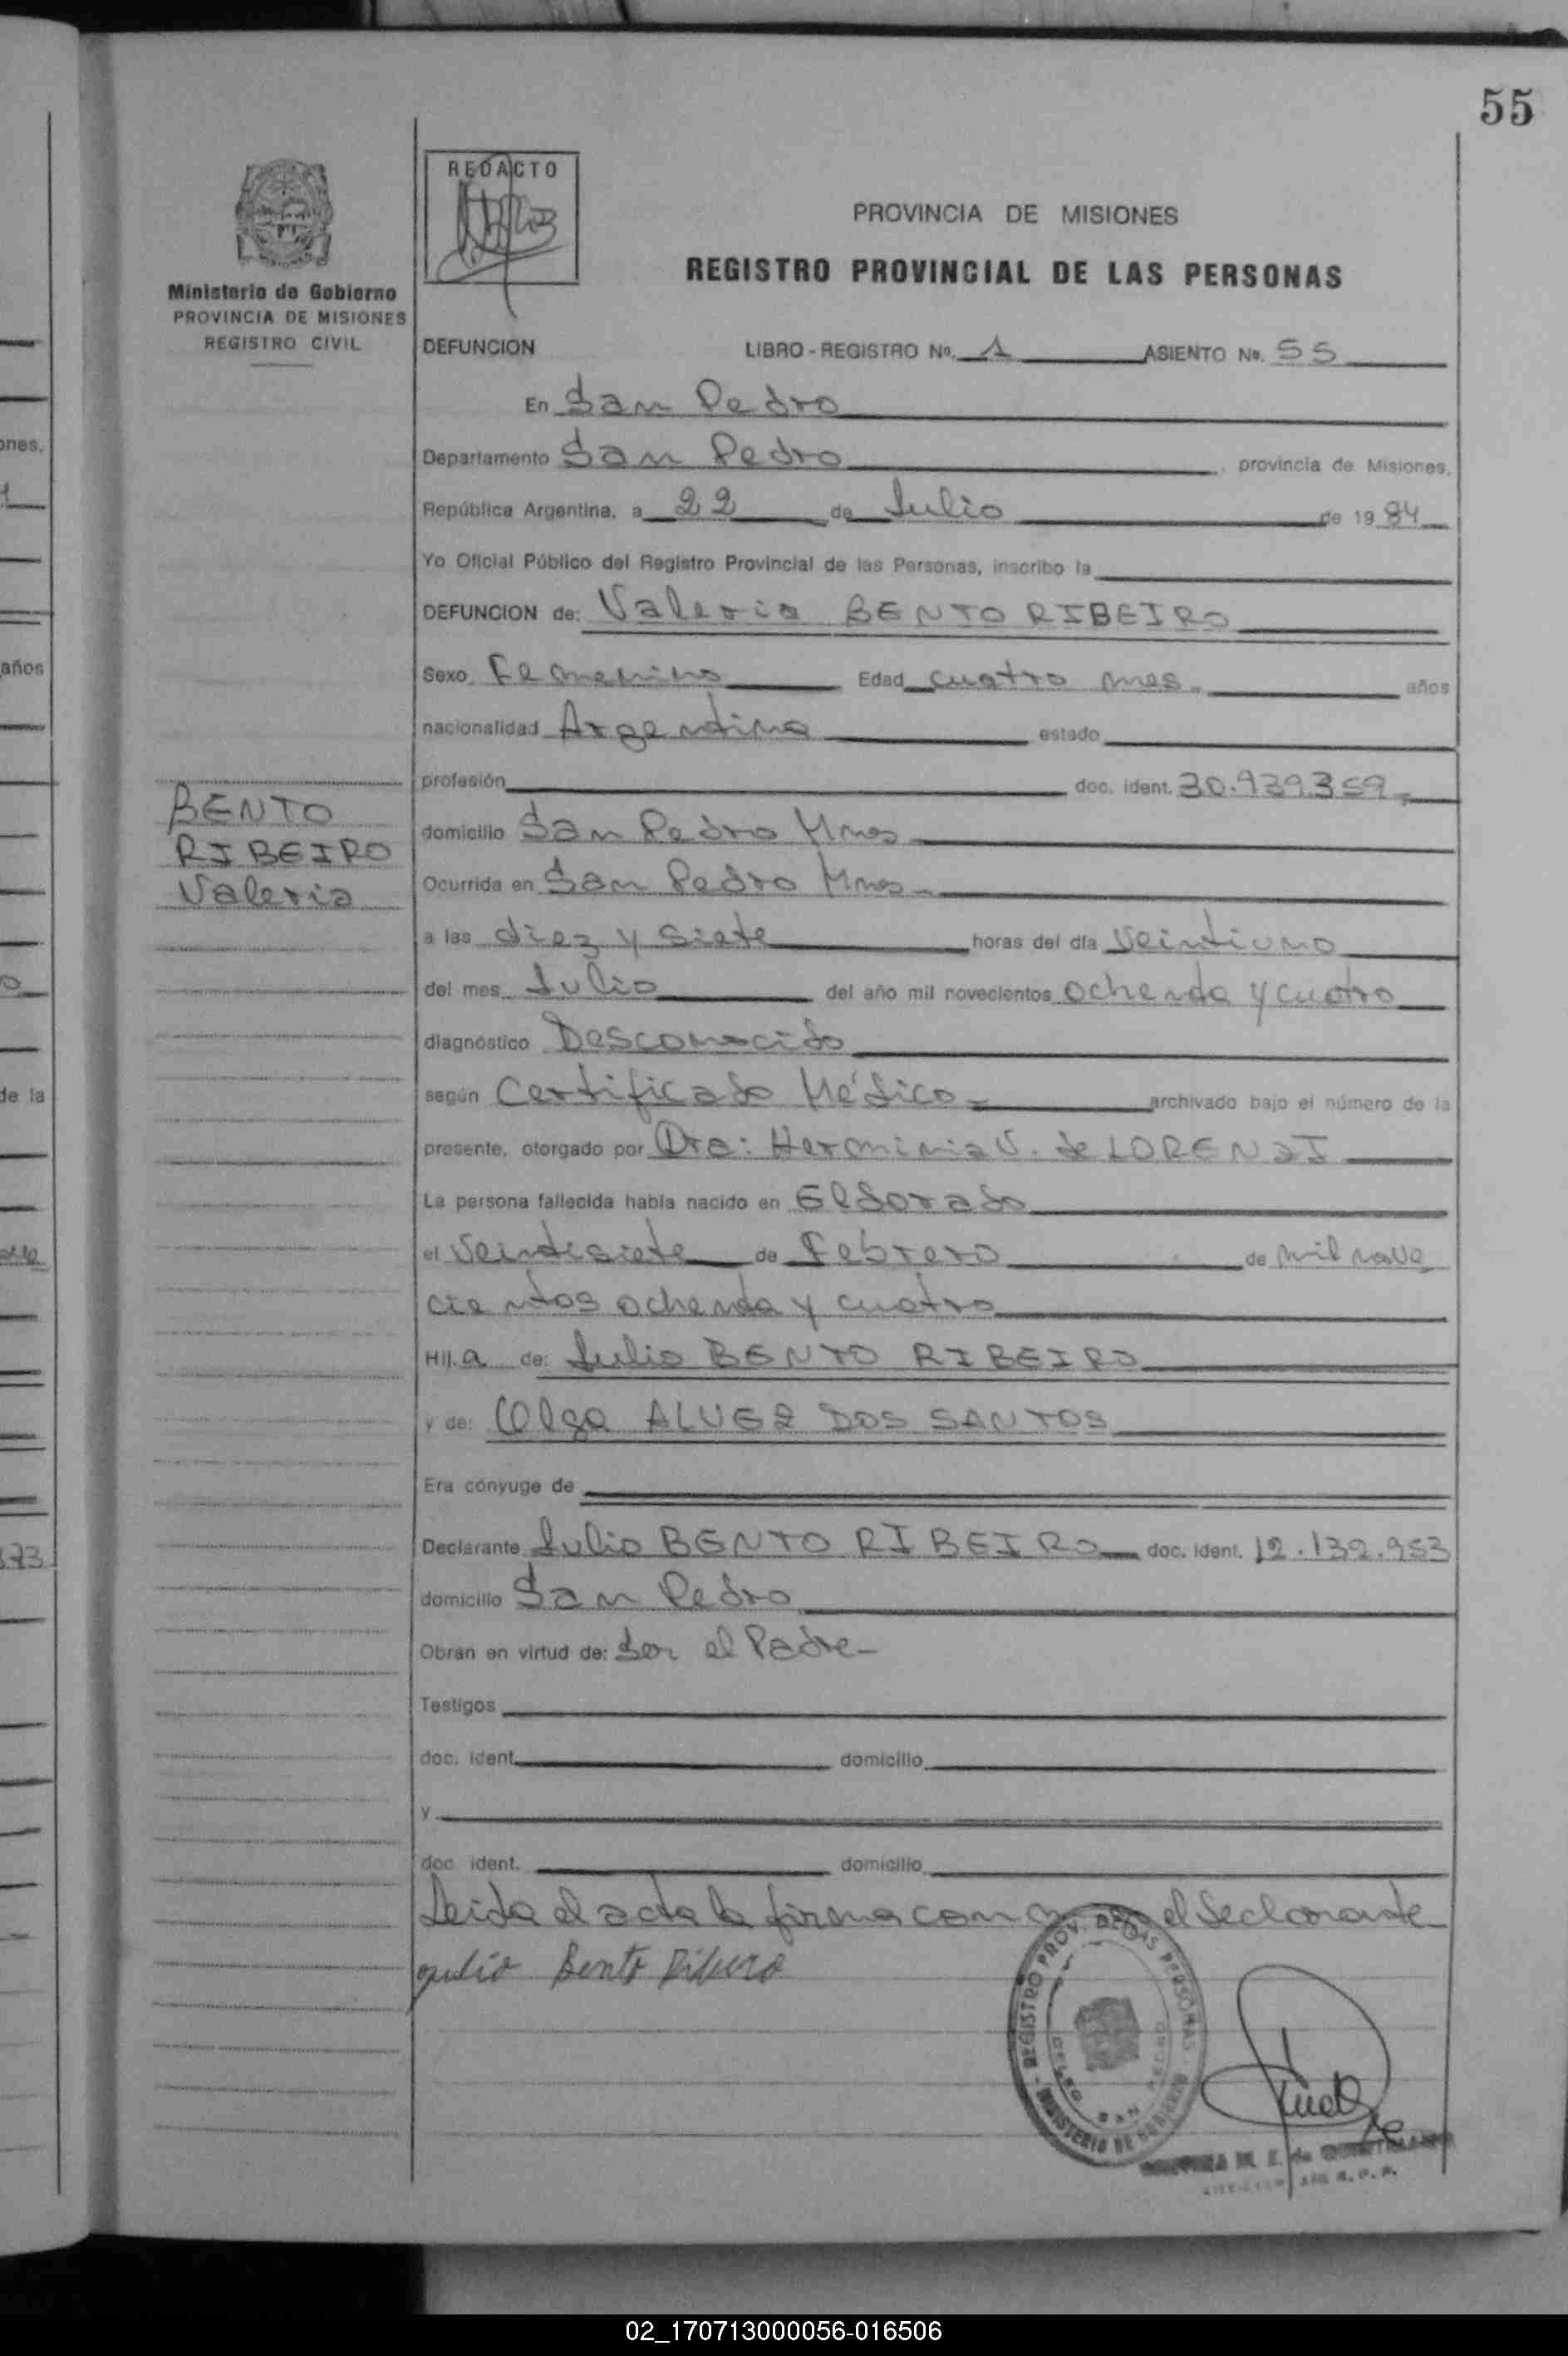 55
REDACTO
PROVINCIA DE MISIONES
REGISTRO PROVINCIAL DE LAS PERSONAS
Ministerio de Gobierno
PROVINCIA DE MISIONES
REGISTRO CIVIL
DEFUNCION LIBRO - REGISTRO No. 1 ASIENTO No. 55
En San Pedro
Departamento San Pedro provincia de Misiones,
República Argentina, a 22 de Julio de 1984
Yo Oficial Público del Registro Provincial de las Personas, inscribo la
DEFUNCION de: Valeria BENTO RIBEIRO
Sexo Femenino Edad cuatro mes. años
nacionalidad Argentina estado
profesión doc. ident. 30.939.359
BENTO
RIBEIRO
Valeria
domicilio San Pedro Mnes
Ocurrida en San Pedro Mnes
a las diez y siete horas del día Veintiuno
del mes Julio del año mil novecientos ochenta y cuatro
diagnóstico Desconocido
según Certificado Médico archivado bajo el número de la
presente, otorgado por Dra: Herminia V. de LORENZI
La persona fallecida había nacido en Eldorado
el Veintisiete de Febrero de mil nove
cientos ochenta y cuatro
Hij.a de: Julio BENTO RIBEIRO
y de: Olga ALVEZ DOS SANTOS
Era cónyuge de
Declarante Julio BENTO RIBEIRO doc. ident. 12.132.953
domicilio San Pedro
Obran en virtud de: Ser el Padre
Testigos
doc. ident. domicilio
y
doc. ident. domicilio
Leida el acta la firma con el declarante
Julio Bento Ribero
REGISTRO PROV. DE LAS PERSONAS
MINISTERIO DE GOBIERNO
ones.
años
de la
173
02_170713000056-016506